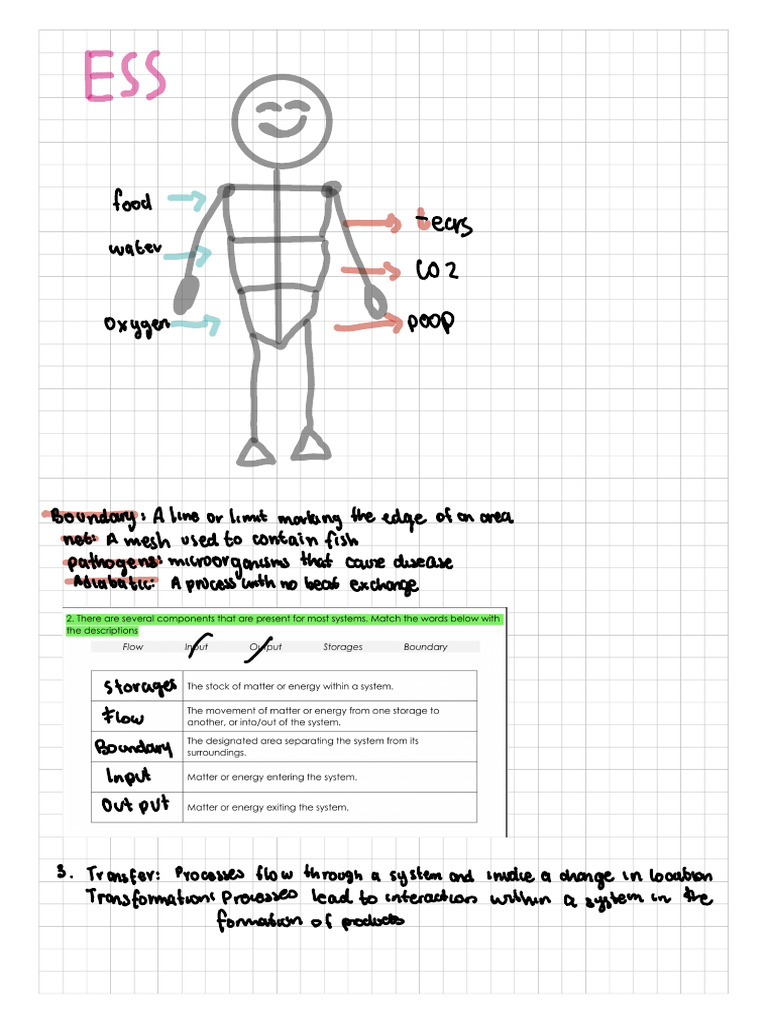 ESS
food
tears
water
CO2
oxygen
poop
Boundary: A line or limit marking the edge of an area
net: A mesh used to contain fish
pathogens: microorganisms that cause disease
Adiabatic: A process with no heat exchange
2. There are several components that are present for most systems. Match the words below with
the descriptions
Flow Input Output Storages Boundary
Storages The stock of matter or energy within a system.
Flow The movement of matter or energy from one storage to
another, or into/out of the system.
Boundary The designated area separating the system from its
surroundings.
Input Matter or energy entering the system.
Output Matter or energy exiting the system.
3. Transfer: Processes flow through a system and involve a change in location
Transformation: Processes lead to interactions within a system in the
formation of products